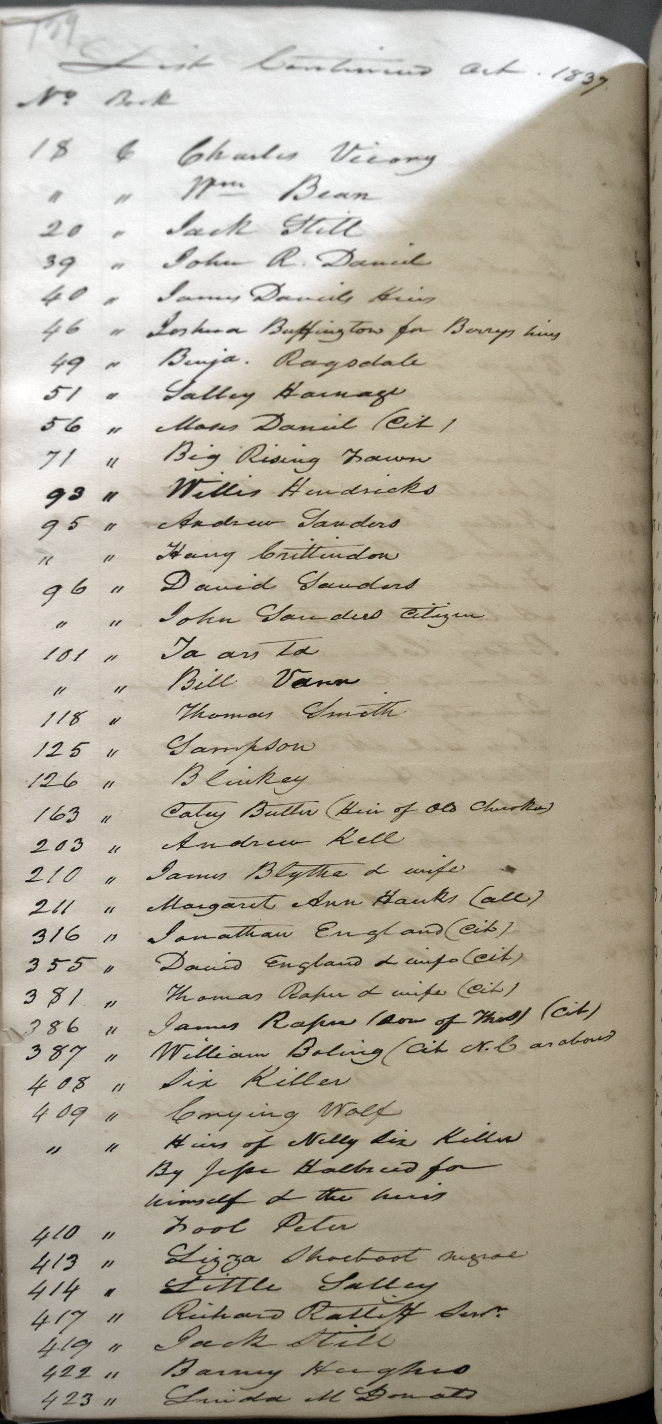 159
List Continued Oct. 1837
No Book
18 C Charles Vicory
" " Wm Bean
20 " Jack Still
39 " John R. Daniel
40 " James Daniels Heirs
46 " Joshua Buffington for Berrys heirs
49 " Benja. Ragsdale
51 " Salley Harnage
56 " Moses Daniel (Cit)
71 " Big Rising Fawn
93 " Willis Hendricks
95 " Andrew Sanders
" " Harry Crittindon
96 " David Sanders
" " John Sanders Citizen
101 " Ta ars ta
" " Bill Vann
118 " Thomas Smith
125 " Sampson
126 " Blinkey
163 " Catey Butler (Heir of Old Cheroke)
203 " Andrew Kell
210 " James Blythe & wife
211 " Margaret Ann Hawks (all)
316 " Jonathan England (Cit)
355 " David England & wife (Cit)
381 " Thomas Raper & wife (Cit)
386 " James Raper (son of Thos) (Cit)
387 " William Boling (Cit N.C. as above)
408 " Six Killer
409 " Crying Wolf
" " Heirs of Nelly Six Killer
By Jesse Halbreed for
himself & the heirs
410 " Fool Peter
413 " Lizza Shoeboot negroe
414 " Little Salley
417 " Richard Ratliff Senr.
419 " Jack Still
422 " Barney Hughes
423 " Linda McDonald